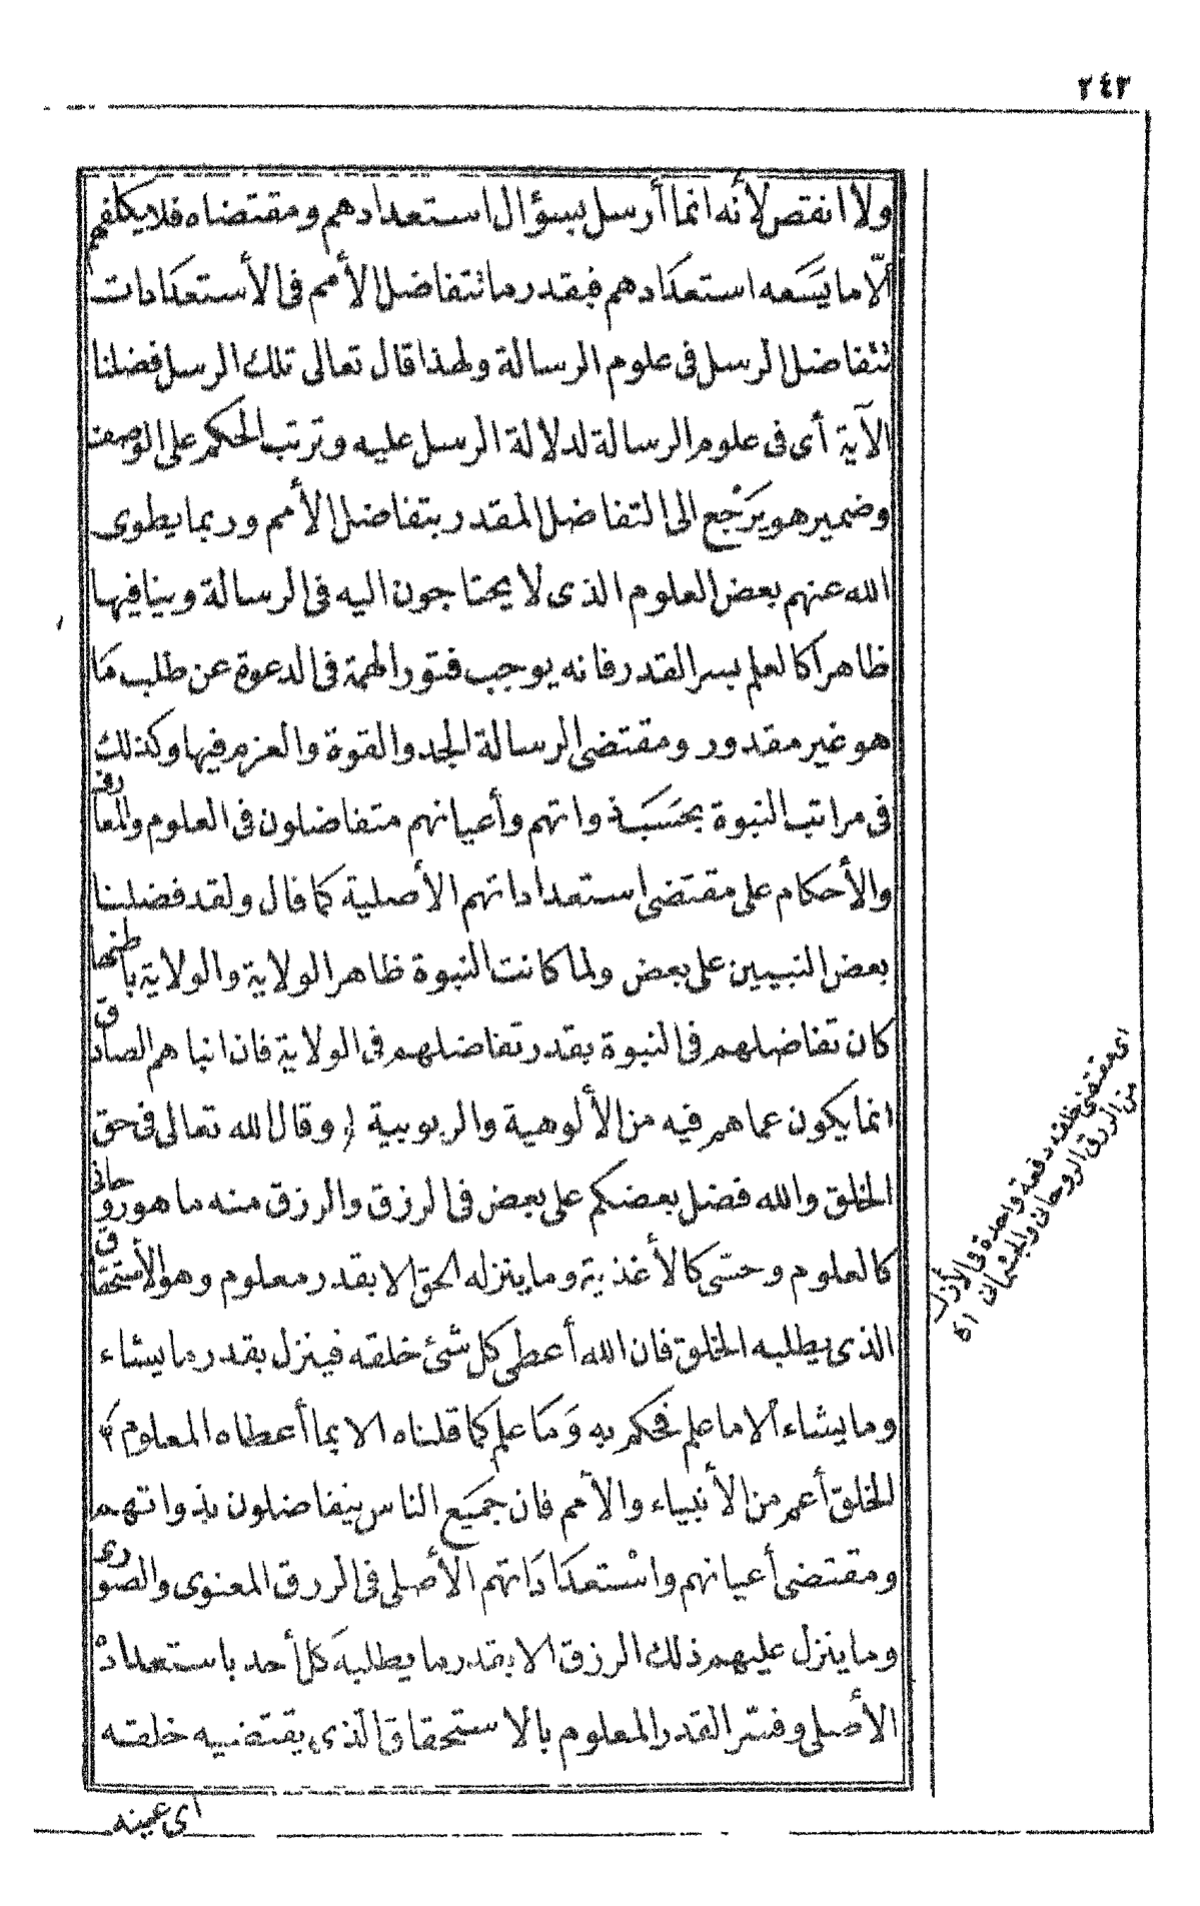 ٢٤٣
ولا انقص لأنه انما أرسل بسؤال استعدادهم ومقتضاه فلا يكلفهم
الّا ما يَسَعه استعدادهم فبقدر ما تتفاضل الأمم فى الأستعدادات
تتفاضل الرسل فى علوم الرسالة ولهذا قال تعالى تلك الرسل فضلنا
الآية أى فى علوم الرسالة لدلالة الرسل عليه وترتب الحكم على الوصف
وضمير هو يَرْجع الى التفاضل المقدر بتفاضل الأمم وربما يطوى
الله عنهم بعض العلوم الذى لا يحتاجون اليه فى الرسالة وينافيها
ظاهرا كالعلم بسر القدر فانه يوجب فتور الهمة فى الدعوة عن طلب مَا
هو غير مقدور ومقتضى الرسالة الجد والقوة والعزم فيها وكذلك
فى مراتب النبوة بحَسَب ذواتهم وأعيانهم متفاضلون فى العلوم والمعارف
والأحكام على مقتضى استعداداتهم الأصلية كما قال ولقد فضلنا
بعض النبيين على بعض ولما كانت النبوة ظاهر الولاية والولاية باطنها
كان تفاضلهم فى النبوة بقدر تفاضلهم فى الولاية فان انباهم الصادق
انما يكون عما هم فيه من الألوهية والربوبية (وقال الله تعالى فى حق
الخلق والله فضل بعضكم على بعض فى الرزق والرزق منه ما هو روحانى
كالعلوم وحسّى كالأغذية وما ينزله الحق الا بقدر معلوم وهو الأستحقاق
الذى يطلبه الخلق فان الله أعطى كل شئ خلقه فينزل بقدر ما يشاء
وما يشاء الا ما علم فحكم به وَمَا علم كما قلناه الا بما أعطاه المعلوم)
الخلق أعم من الأنبياء والأمم فان جميَع الناس يتفاضلون بذواتهم
ومقتضى أعيانهم واسْتعدَادَاتهم الأصلى فى الرزق المعنوى والصورى
وما ينزل عليهم ذلك الرزق الا بقدر ما يطلبهَ كل أحد باستعدادهْ
الأصلى وفسّر القدر المعلوم بالاستحقاق الّذى يقتضيه خلقته
اى مقتضى خلقه دفعة واحدة فى الأزل
من الرزق الروحانى والجسمانى
اى عينه